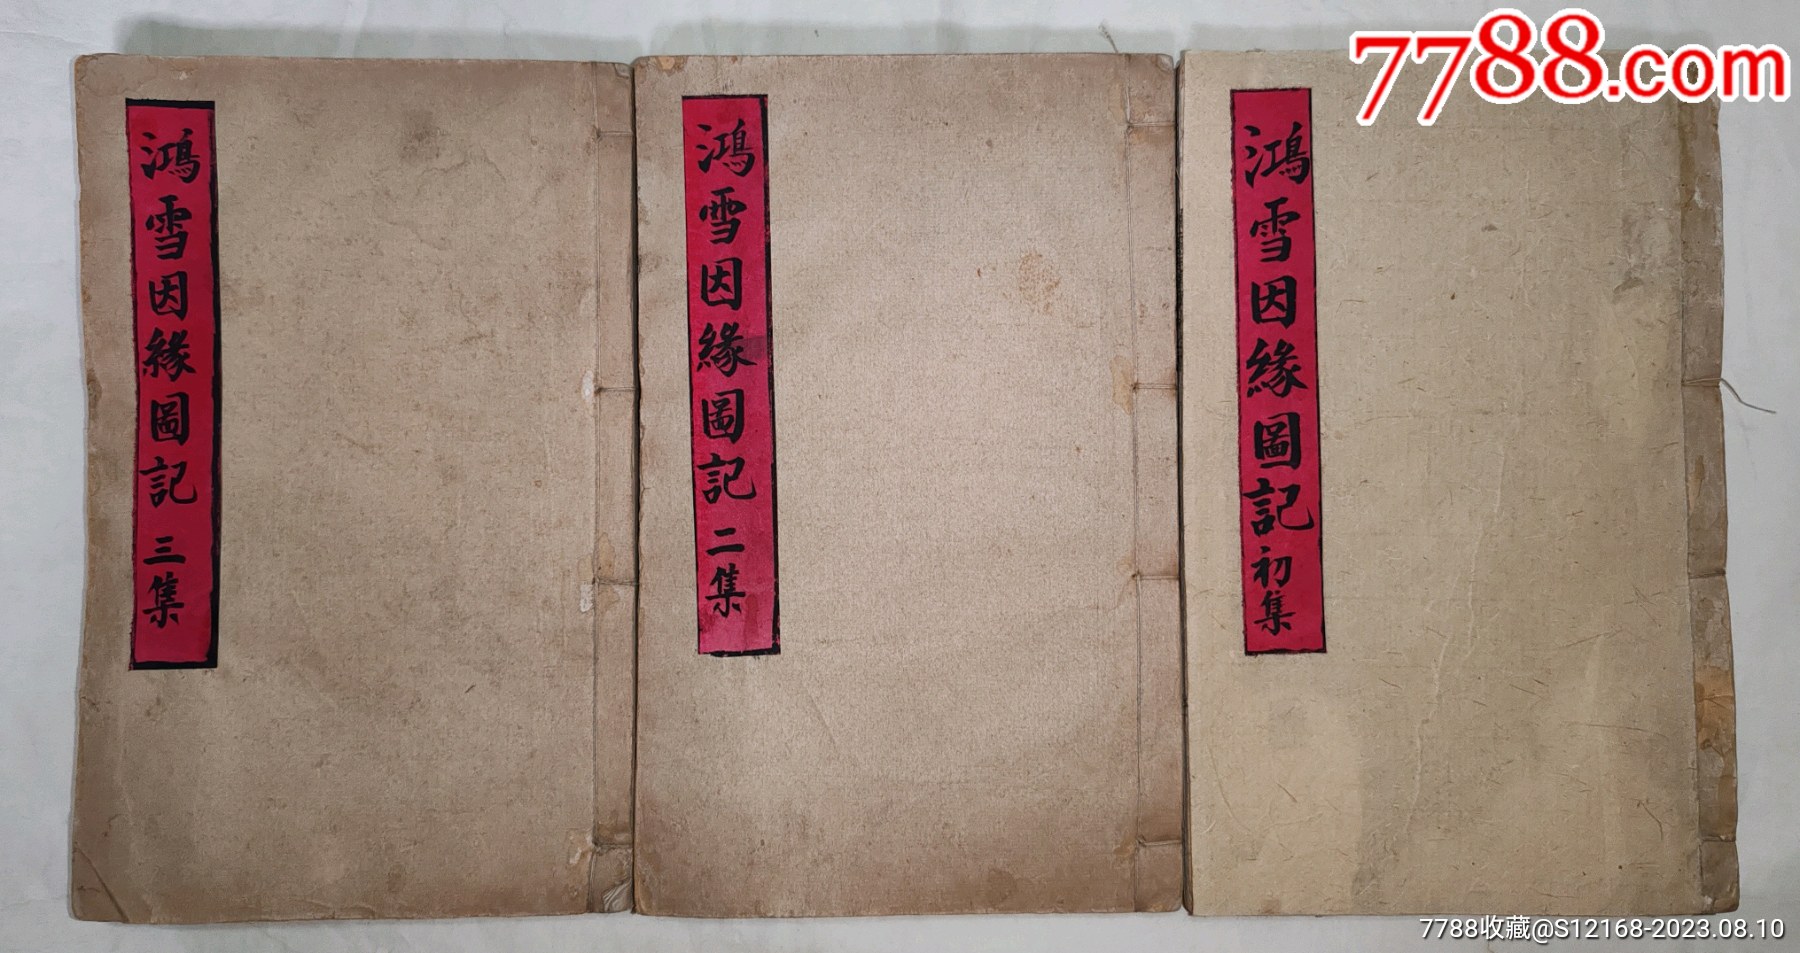 7788.com
鴻雪因緣圖記 初集
鴻雪因緣圖記 二集
鴻雪因緣圖記 三集
7788收藏@S12168-2023.08.10